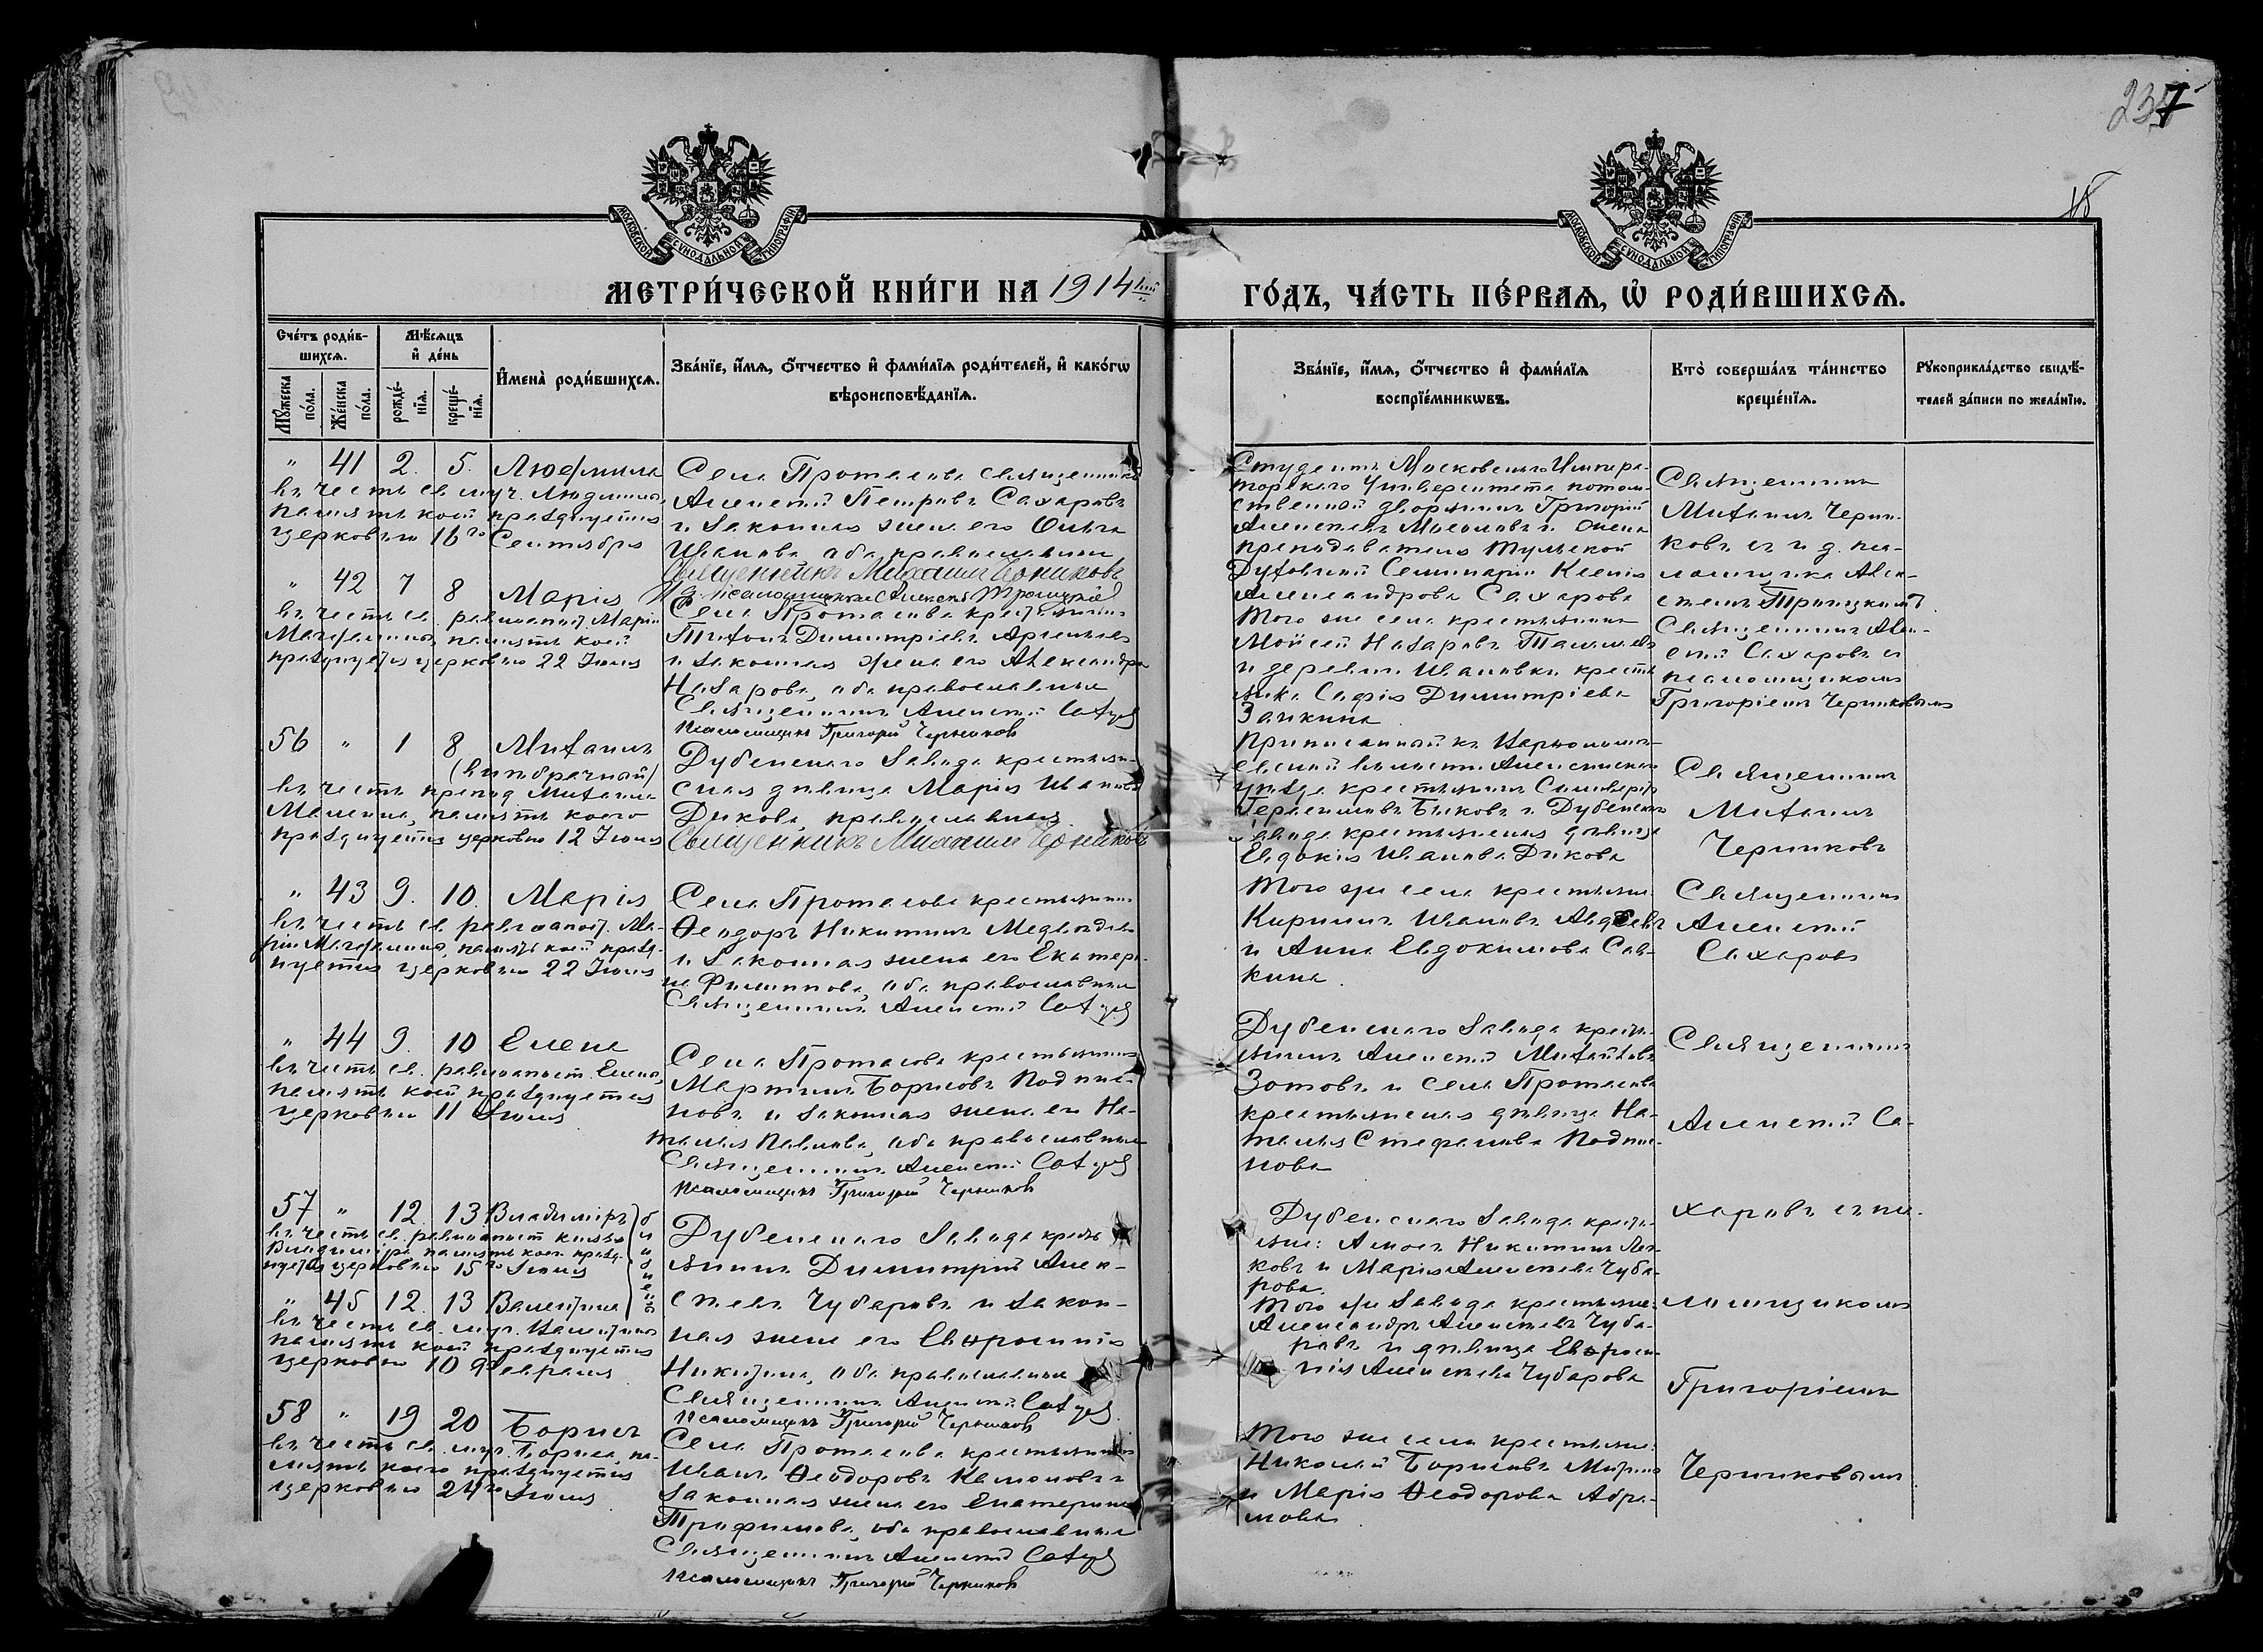 237
18
МОСКОВСКОЙ СѴНОДАЛЬНОЙ ТИПОГРАФІИ
МОСКОВСКОЙ СѴНОДАЛЬНОЙ ТИПОГРАФІИ
МЕТРИ́ЧЕСКОЙ КНИ́ГИ НА 1914 ГО́ДЪ, ЧА́СТЬ ПЕ́РВАѦ, Ѡ҆ РОДИ́ВШИХСѦ.
Сче́тъ роди́в-
шихсѧ.
Мꙋ́жеска
по́ла.
Же́нска
по́ла.
Мѣ́сѧцъ
и҆ де́нь
рожде́-
нїѧ.
креще́-
нїѧ.
И҆мена̀ роди́вшихсѧ.
Зва́нїе, и҆́мѧ, ѻ҆́тчество и҆ фами́лїѧ роди́телей, и҆ како́гѡ
вѣроисповѣ́данїѧ.
Зва́нїе, и҆́мѧ, ѻ҆́тчество и҆ фами́лїѧ
воспрїе́мникѡвъ.
Кто̀ соверша́лъ та́инство
креще́нїѧ.
Рꙋкоприкла́дство свидѣ́-
телей за́писи по жела́нїю.
" 41 2. 5. Людмила
въ честь св. муч. Людмилы,
память коей празднуется
церковью 16го Сентября
Села Протасова священникъ
Алексій Петровъ Сахаровъ
и законная жена его Ольга
Иванова, оба православные
Священникъ Михаилъ Черниковъ
И. д. псаломщика Алексей Троицкій
Студентъ Московскаго Импера-
торскаго Университета потом-
ственный дворянинъ Григорій
Алексѣевъ и
преподавателя Тульской
Духовной Семинаріи Ксенія
Александрова Сахарова
Священникъ
Михаилъ Черни-
ковъ съ и. д. пса-
ломщика Алек-
сѣемъ Троицкимъ.
" 42 7 8 Марія
въ честь св. равноапост. Маріи
Магдалины, память коей
празднуется церковью 22 Іюля
Села Протасова крестьянинъ
Тихонъ Димитріевъ
и законная жена его Александра
Назарова, оба православные
Священникъ Алексій Сахаровъ
Псаломщикъ Григорій Черниковъ
Того же села крестьянинъ
Моисей Назаровъ
и деревни Ивановки кресть-
янка Софія Димитріева
Заикина
Священникъ Алек-
сій Сахаровъ съ
псаломщикомъ
Григоріемъ Черниковымъ
56 " 1 8 Михаилъ
(внѣбрачный)
въ честь препод. Михаила
Малеина, память коего
празднуется церковью 12 Іюля
Дубенскаго Завода крестьян-
ская дѣвица Марія Иванова
Дикова, православная
Священникъ Михаилъ Черниковъ
Приписанный къ
волости Алексинскаго
уѣзда крестьянинъ
Герасимовъ Быковъ и Дубенскаго
Завода крестьянская дѣвица
Евдокія Иванова Дикова
Священникъ
Михаилъ
Черниковъ
" 43 9. 10. Марія
въ честь св. равноапост. Ма-
ріи Магдалины, память коей празд-
нуется церковью 22 Іюля
Села Протасова крестьянинъ
Ѳеодоръ Никитинъ Медвѣдевъ
и законная жена его Екатери-
на Филиппова, оба православные
Священникъ Алексій Сахаровъ
Того же села крестьяне
Кириллъ Ивановъ Авдеевъ
и Анна Евдокимова Сав-
кина.
Священникъ
Алексій
Сахаровъ
" 44 9. 10 Елена
въ честь св. равноапост. Елены,
память коей празднуется
церковью 11 Іюля
Села Протасова крестьянинъ
Мартинъ Борисовъ
и законная жена его На-
талия Павлова, оба православные
Священникъ Алексій Сахаровъ
Псаломщикъ Григорій Черниковъ
Дубенскаго Завода кресть-
янинъ Алексій Михайловъ
Зотовъ и села Протасова
крестьянская дѣвица На-
талия Стефанова
Священникъ
Алексій Са-
57 " 12. 13 Владиміръ
въ честь св. равноапост. князя
Владиміра, память коего празд-
нуется церковью 15го Іюля
" 45 12. 13 Валентина
близнецы
въ честь св. муч. Валентины
память коей празднуется
церковью 10 Февраля
Дубенскаго Завода кресть-
янинъ Димитрій Алек-
сѣевъ Чубаровъ и закон-
ная жена его Евфросинія
Никитина, оба православные
Священникъ Алексій Сахаровъ
Псаломщикъ Григорій Черниковъ
Дубенскаго Завода кресть-
яне: Никитинъ
и Марія Алексѣева Чуба-
рова.
Того же Завода крестьяне:
Александръ Алексѣевъ Чуба-
ровъ и дѣвица Евфроси-
нія Алексѣева Чубарова
харовъ съ пса-
ломщикомъ
Григоріемъ
Черниковымъ
58 " 19 20 Борисъ
въ честь св. муч. Бориса, па-
мять коего празднуется
церковью 24го Іюля
Села Протасова крестьянинъ
Иванъ Ѳеодоровъ и
законная жена его Екатерина
Трофимова, оба православные
Священникъ Алексій Сахаровъ
Псаломщикъ Григорій Черниковъ
Того же села крестьяне:
Николай Борисовъ
и Марія Ѳеодорова Абра-
мова